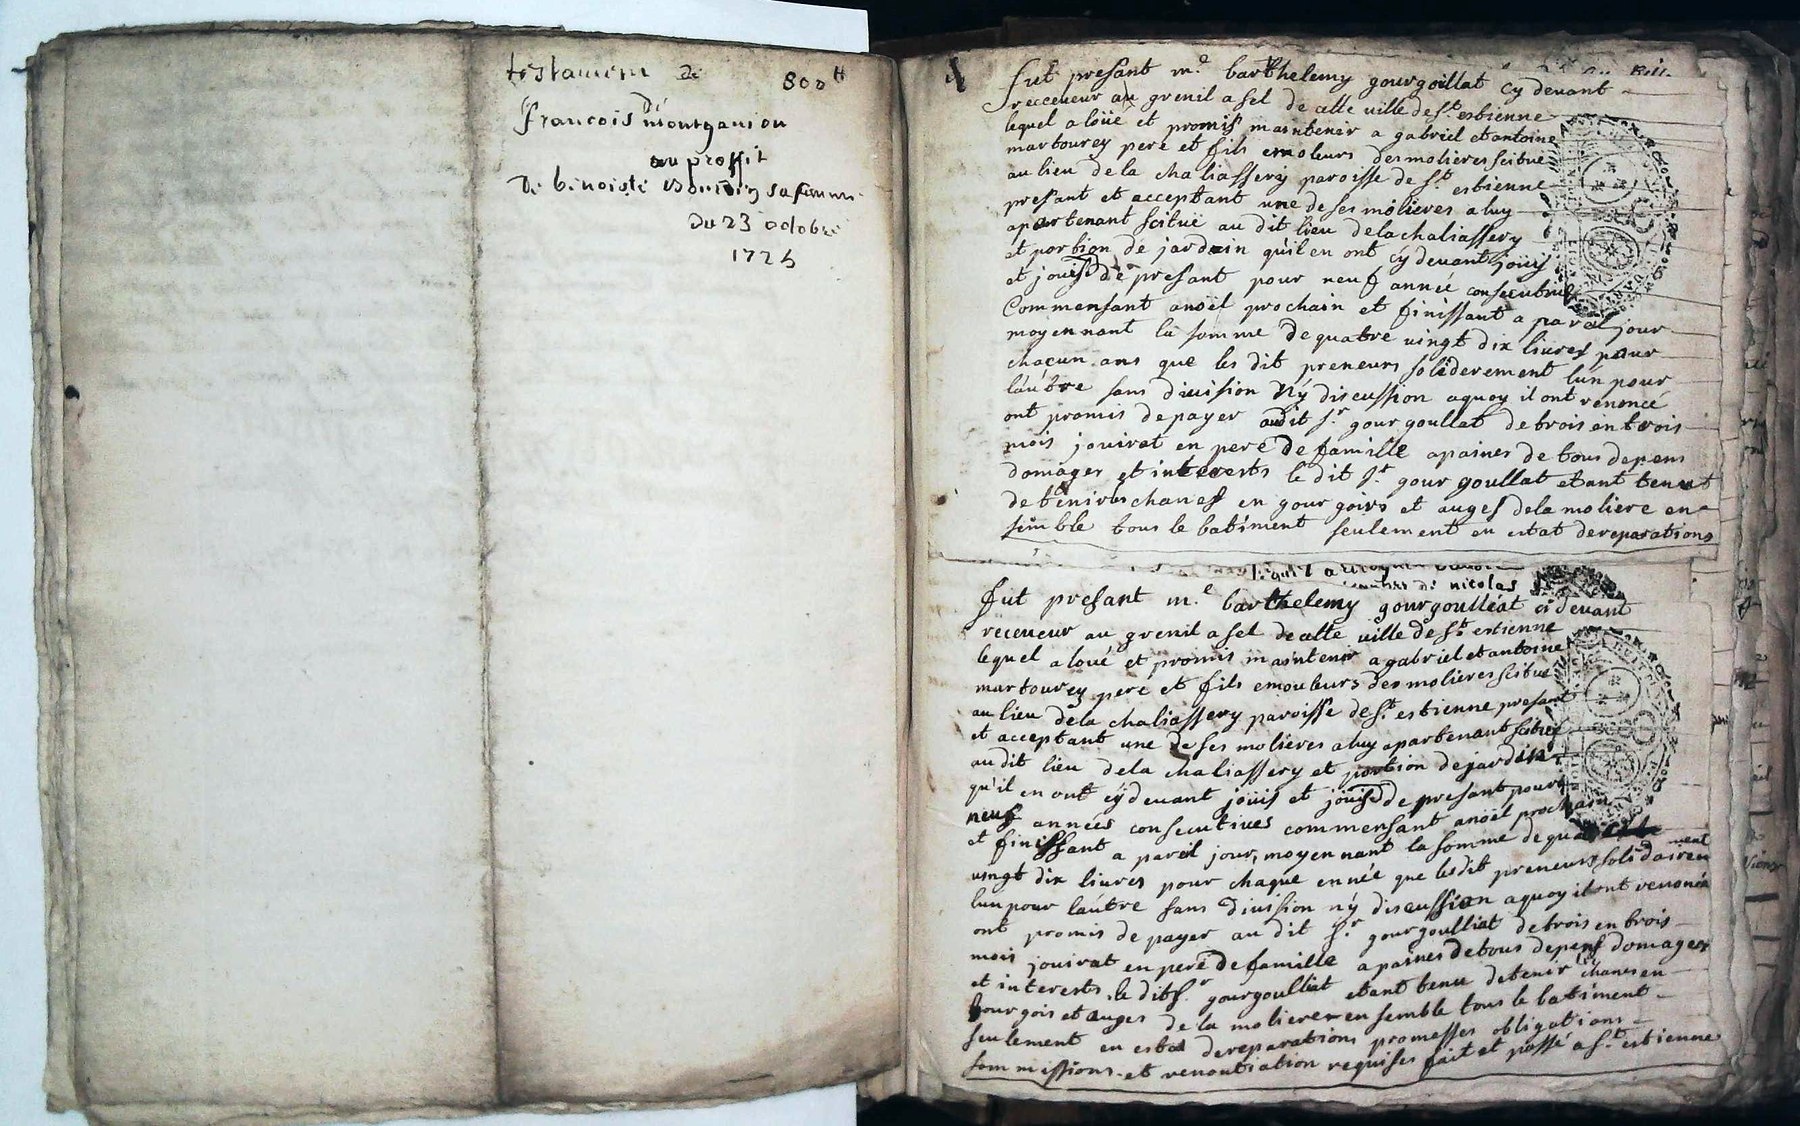 testament de 800 H
francois de mourganiou
au proffit
de benoiste bourdin sa femme
du 23 octobre
1725
fut presant m.e barthelemy gourgoillat cy devant
recceveur au grenil a sel de cette ville de s.t estienne
lequel a loüe et promis maintenir a gabriel et antoine
martourey pere et fils emoleurs des molieres scitue
au lieu de la chaliassery paroisse de s.t estienne
presant et acceptant une de ses molieres a luy
apartenant scitue au dit lieu de la chaliassery
et portion de jardein qu'il en ont cy devant joüis
et jouise de presant pour neuf année consecutives
Commensant a noël prochain et finissant a pareil jour
moyennant la somme de quatre vingt dix livres pour
chacun ans que les dit preneurs soliderement lun pour
lautre sans division n'y discussion a quoy il ont renoncé
ont promis de payer audit s.r gourgoullat de trois en trois
mois jouirat en pere de famille a paines de tous depens
domages et interests le dit s.r gourgoullat etant tenut
de tenir les chanes en gourgoirs et auges de la moliere en-
semble tous le batiment seulement en estat de reparations
de nicolas
fut presant m.e barthelemy gourgoulliat ci devant
receveur au grenil a sel de cette ville de s.t estienne
lequel a loué et promis maintenir a gabriel et antoine
martourey pere et fils emouleurs des molieres scitue
au lieu de la chaliassery paroisse de s.t estienne presant
et acceptant une de ses molieres a luy apartenant scitues
au dit lieu de la chaliassery et portion de jardin
qu'il en ont cy devant joüis et jouise de presant pour
neuf années consecutives commensant a noël prochain
et finissant a pareil jour, moyennant la somme de quatre
vingt dix livres pour chaque ennée que les dit preneurs solidairement
lun pour lautre sans division n'y discussion a quoy il ont renoncé
ont promis de payer au dit s.r gourgoulliat de trois en trois
mois jouirat en pere de famille a paines de tous depens domages
et interests, le dit s.r gourgoulliat etant tenu de tenir les chanes en
gourgois et auges de la moliere ensemble tous le batiment
seulement en estat de reparations promesses obligations
sommissions et renontiation requises fait et passé a s.t estienne